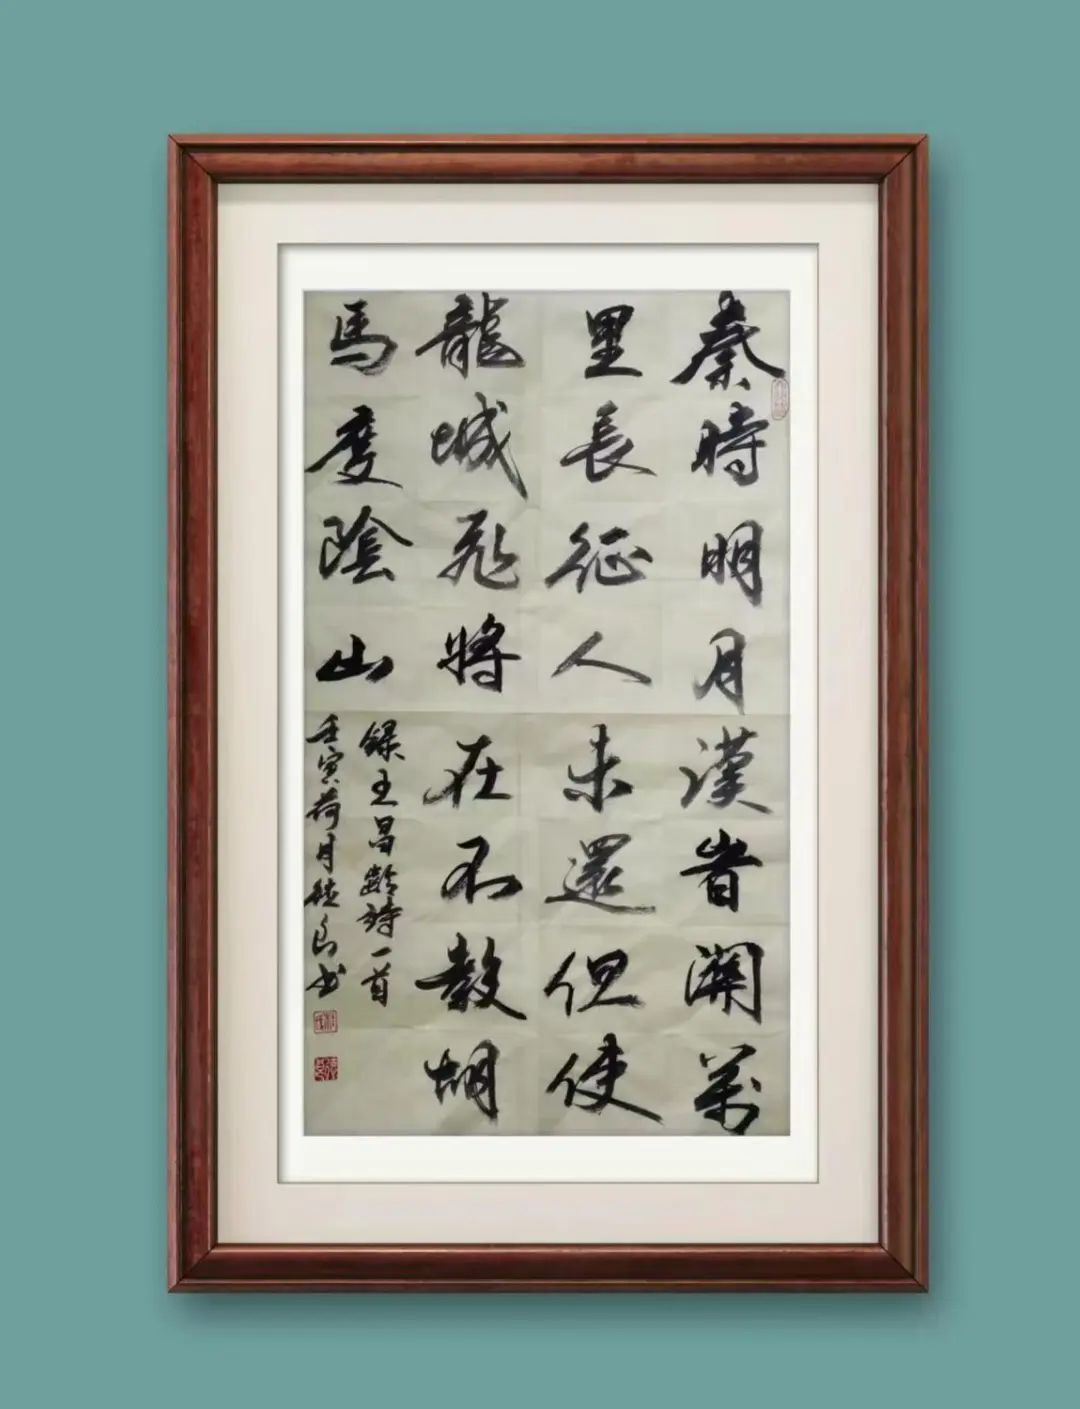 秦時明月漢旹關萬
里長征人未還但使
龍城飛將在不教胡
馬度陰山
録王昌齡詩一首
壬寅荷月良书